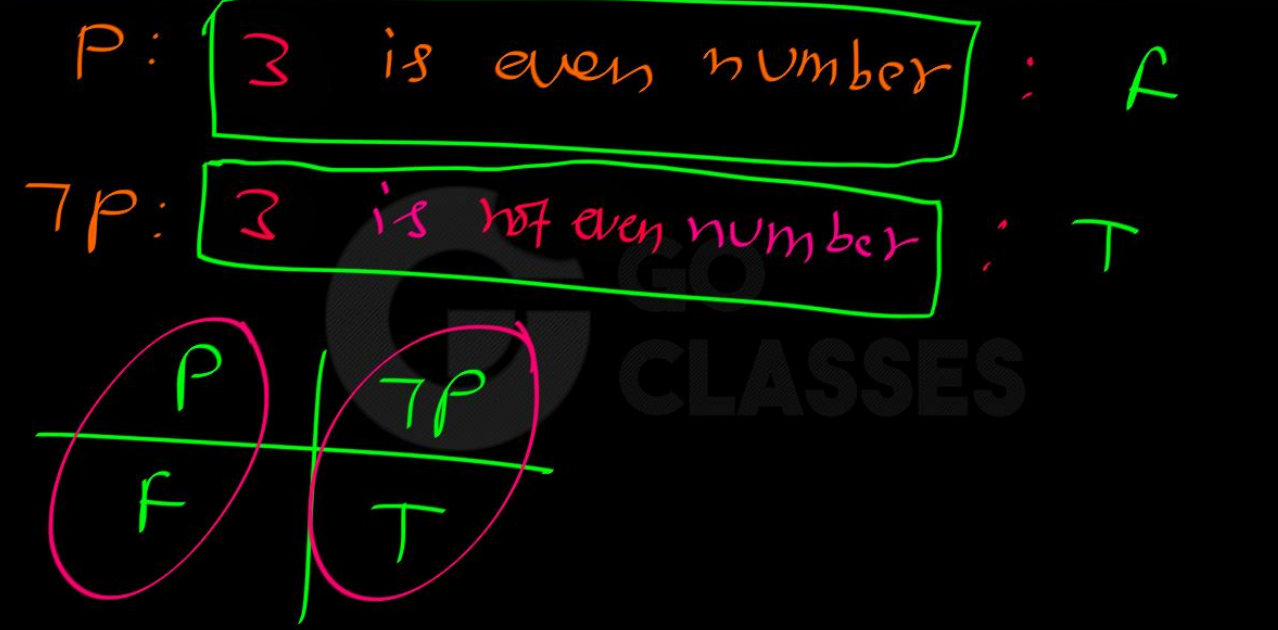 P: 3 is even number : F
¬P: 3 is not even number : T
GO
CLASSES
P ¬P
F T